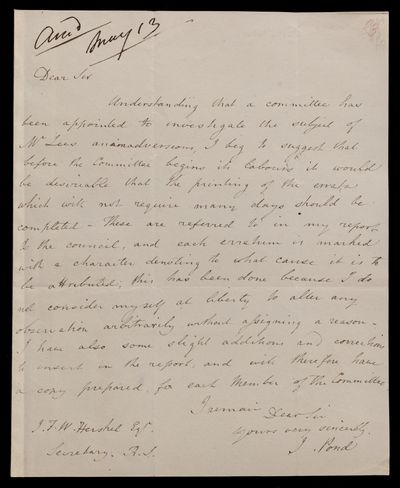 Ansd May 13
Dear Sir
Understanding that a committee has
been appointed to investigate the subject of
Mr Lees animadversions, I beg to suggest that
before the Committee begins its labours it would
be desireable that the printing of the errata
which will not require many days should be
completed - These are referred to in my report
to the council, and each erratum is marked
with a character denoting to what cause it is to
be attributed; this has been done because I do
not consider myself at liberty to alter any
observation arbitrarily without assigning a reason -
I have also some slight additions and corrections
to insert in the report, and will therefore have
a copy prepared for each Member of the Committee
I remain Dear Sir
Yours very sincerely.
J. Pond
J. F. W. Hershel Esqr.
Secretary. R. S.